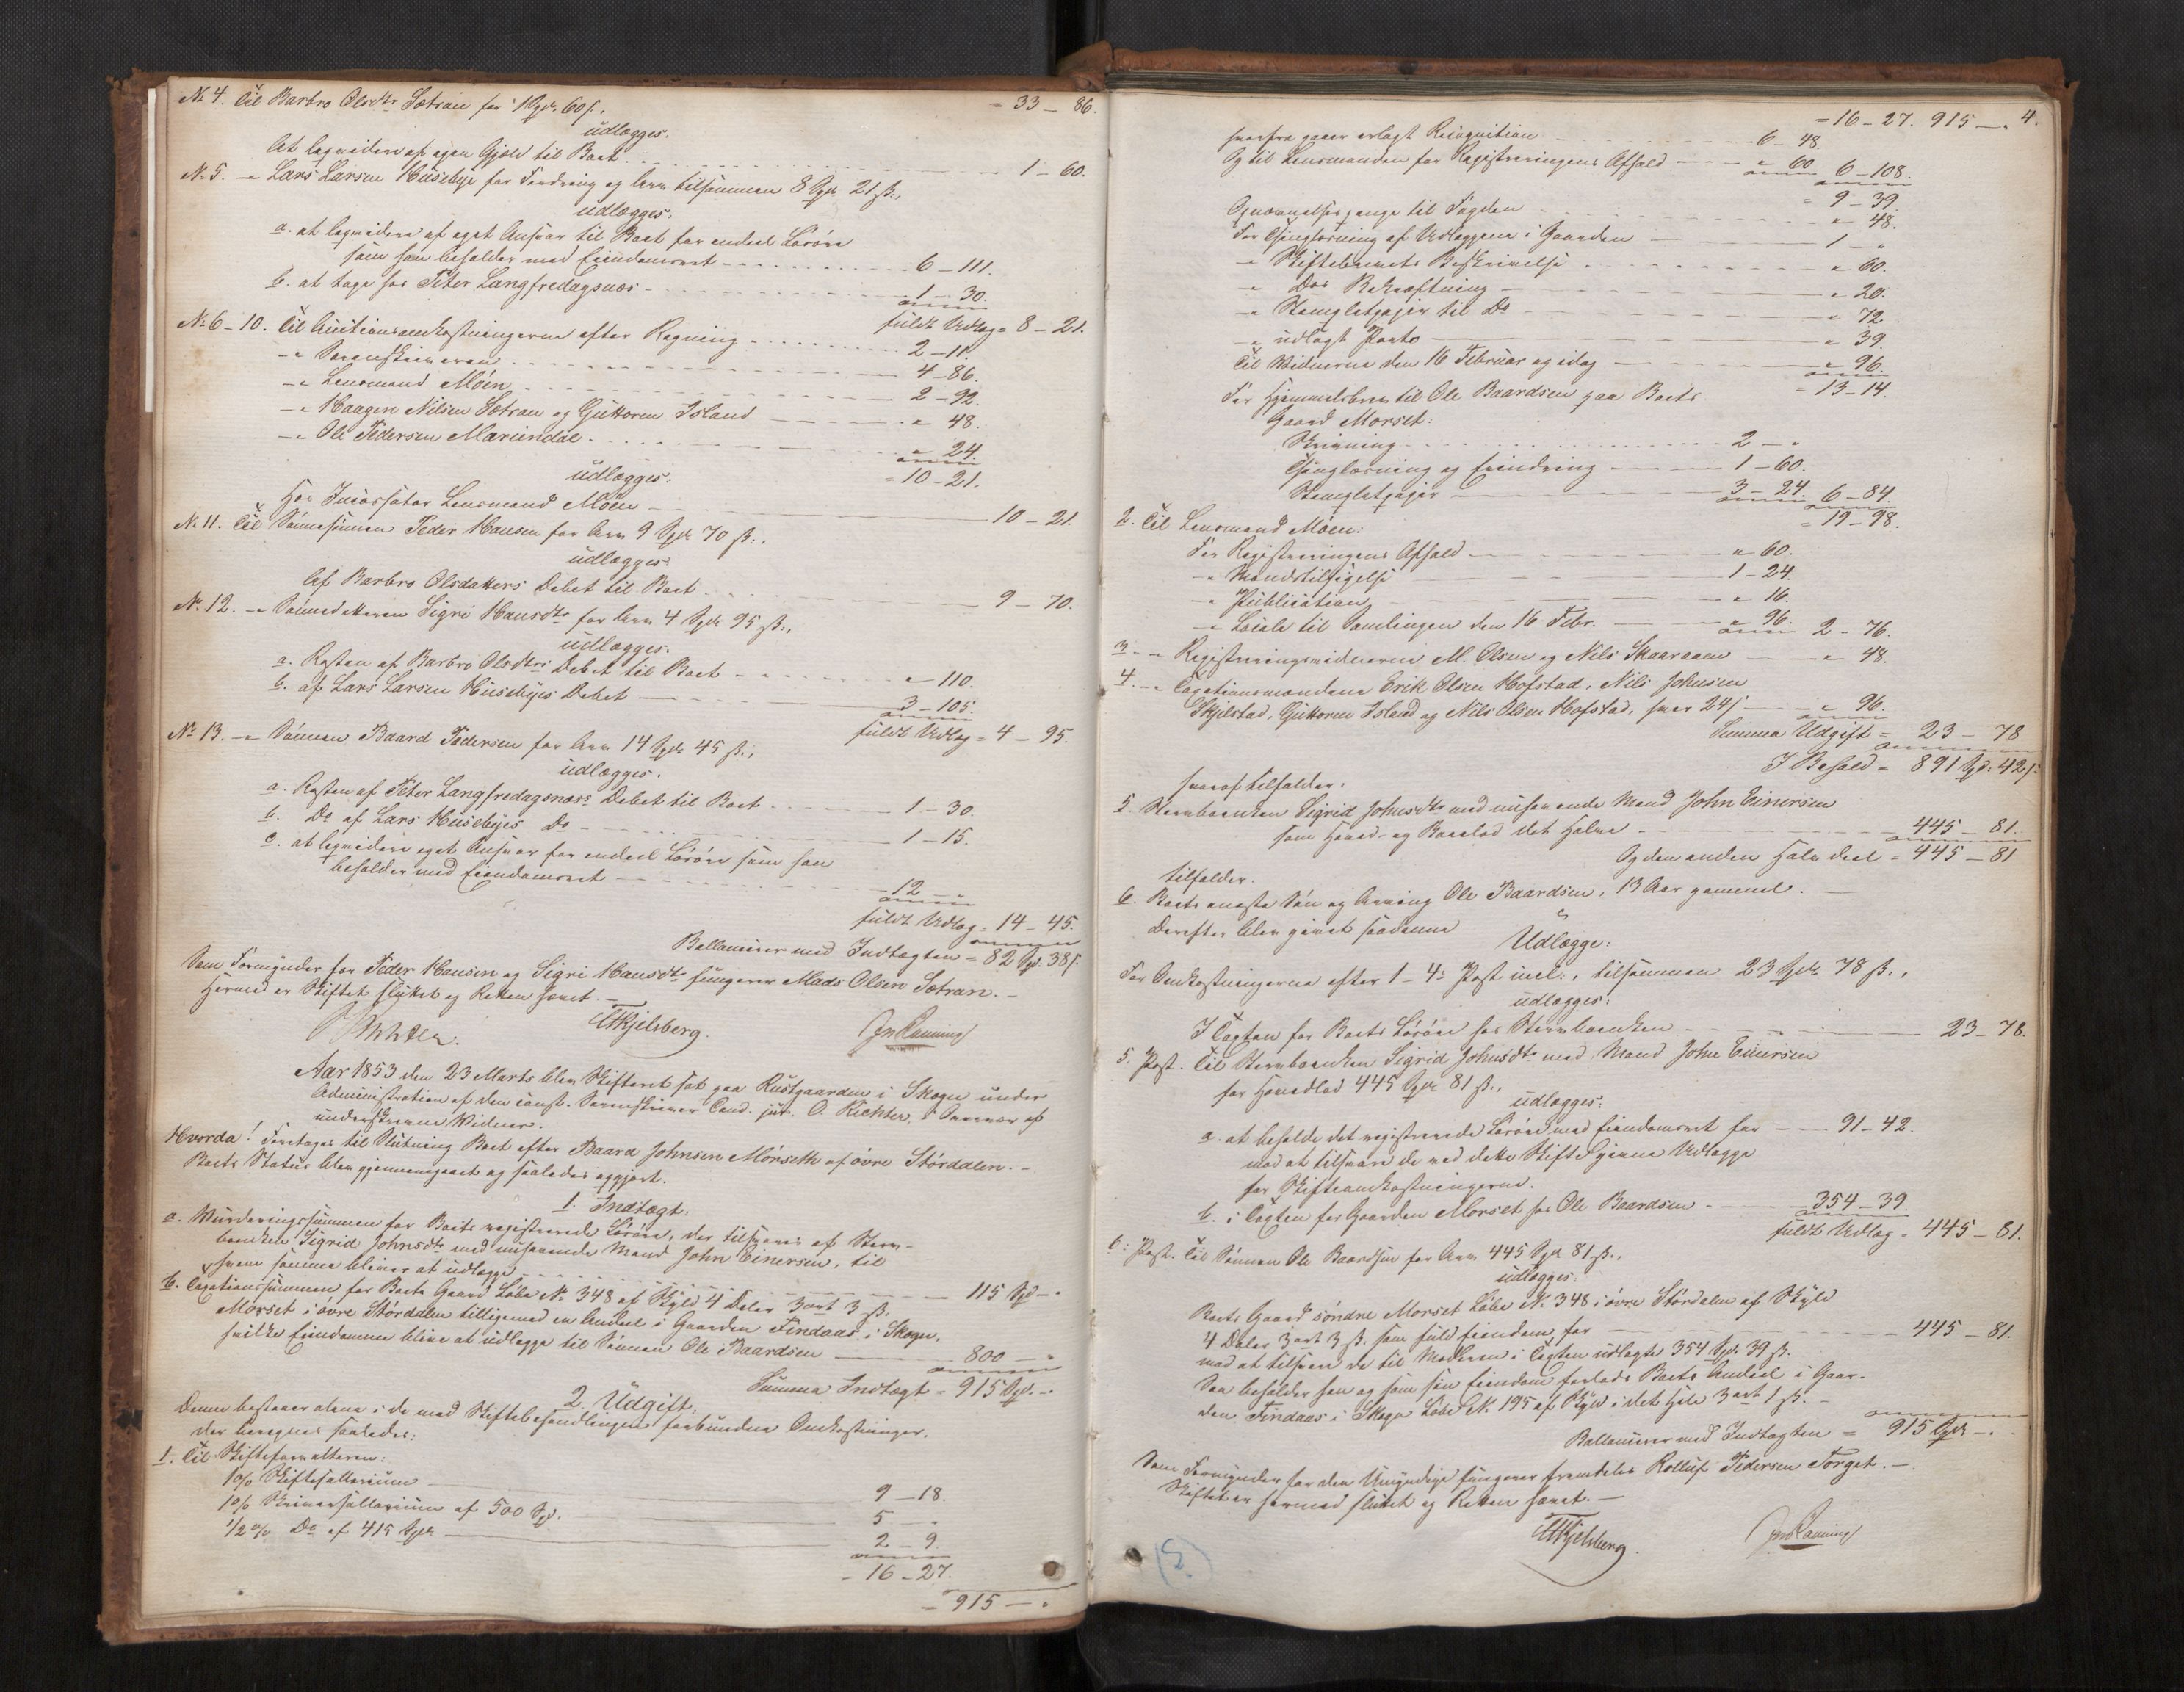 No 4. Til Barbro Olsdtr Sætran for 1 Spd. 60 ß. = 33 – 86.
udlægges:
At liqvidere af egen Gjæld til Boet 1 – 60.
No 5. – " Lars Larsen Husebye for Fordring og Arv tilsammen 8 Spd 21 ß.,
udlægges:
a. at liqvidere af eget Ansvar til Boet for endeel Løsøre
som han beholder med Eiendomsret 6 – 111.
b. at tage hos Peter Langfredagsnæs 1 – 30.
fuldt Udlæg = 8 – 21.
No 6–10. Til Auctionsomkostningerne efter Regning 2 – 11.
– " Sorenskriveren 4 – 86.
– " Lensmand Moen 2 – 92.
– " Haagen Nilsen Sætran og Guttorm Island " 48.
– " Ole Pedersen Marændal " 24.
= 10 – 21.
udlægges:
Hos Incassator Lensmand Moen 10 – 21.
No 11. Til Sønnesønnen Peder Hansen for Arv 9 Spd 70 ß.,
udlægges:
Af Barbro Olsdatters Debet til Boet 9 – 70.
No 12. – " Sønnedatteren Sigri Hansdtr for Arv 4 Spd 95 ß.,
udlægges:
a. Resten af Barbro Olsdtrs Debet til Boet " 110.
b. af Lars Larsen Husebyes Debet 3 – 105.
fuldt Udlæg = 4 – 95.
No 13. – " Sønnen Baard Pedersen for Arv 14 Spd 45 ß.,
udlægges:
a. Resten af Peter Langfredagsnæss Debet til Boet 1 – 30.
b. Do af Lars Husebyes Do 1 – 15.
c. at liqvidere eget Ansvar for endeel Løsøre som han
beholder med Eiendomsret 12 – "
fuldt Udlæg = 14 – 45.
Ballancerer med Indtægten = 82 Spd 38 ß.
Som Formynder for Peder Hansen og Sigri Hansdtr fungerer Mads Olsen Sætran. –
Hermed er Skiftet sluttet og Retten hævet. –
Richter. Kjelsberg. Jns Lanning
Aar 1853 den 23 Marts blev Skifteret sat paa Rustgaarden i Skogn under
Administration af den const. Sorenskriver Cand. jur. O. Richter, i Overvær af
underskrevne Vidner.
Hvorda! Foretages til Slutning Boet efter Baard Johnsen Mórseth af øvre Stórdalen. –
Boets Status blev gjennemgaaet og saaledes opgjort.
1. Indtægt:
a. Vurderingssummen for Boets registrerede Løsøre, der tilsvares af Sterv-
boenken Sigrid Johnsdtr med nuhavende Mand John Einersen, til
hvem samme bliver at udlægge 115 Spd – "
b. Taxationssummen for Boets Gaard Løbe No 348 af Skyld 4 Daler 3 ort 3 ß.
Morset i øvre Stórdalen tilligemed en Andeel i Gaarden Findaas i Skogn,
hvilke Eiendomme blive at udlægge til Sønnen Ole Baardsen 800 – "
Summa Indtægt = 915 Spd. – "
2. Udgift.
Denne bestaaer alene i de med Skiftebehandlingen forbundne Omkostninger,
der beregnes saaledes:
1. Til Skifteforvalteren:
1 o/o Skiftesallarium 9 – 18.
1 o/o Skriversallarium af 500 Spd. 5 – "
1/2 o/o Do af 415 Spd 2 – 9.
= 16 – 27.
= 915 – "
4.
= 16 – 27. 915 – "
hvorfra gaaer erlagt Reqvisition 6 – 48.
Og til Lensmanden for Registreringens Afhold " 60. 6 – 108.
= 9 – 39.
Opnævnelsespenge til Fogden " 48.
For Thinglæsning af Udlæggene i Gaarden 1 – "
– " Skiftebrevets Beskrivelse " 60.
– " Dos Bekræftning " 20.
– " Stempletpapir til Do " 72.
– " udlagt Porto " 39.
Til Vidnerne den 16 Februar og idag " 96.
= 13 – 14.
For Hjemmelsbrev til Ole Baardsen paa Boets
Gaard Morset:
Skrivning 2 – "
Thinglæsning og Erindring 1 – 60.
Stempletpapir 3 – 24. 6 – 84.
= 19 – 98.
2. Til Lensmand Moen:
For Registreringens Afhold " 60.
– " Mandstilsigelse 1 – 24.
– " Publication " 16.
– " Locale til Samlingen den 16 Febr. " 96. 2 – 76.
3. – " Registreringsvidnerne M. Olsen og Nils Skaaraaen " 48.
4. – " Taxationsmændene Erik Olsen Hofstad, Nils Johnsen
Skjelstad, Guttorm Island og Nils Olsen Hofstad, hver 24 ß " 96.
Summa Udgift = 23 – 78
I Behold = 891 Spd. 42 ß.
hvoraf tilfalder:
5. Stervboenken Sigrid Johnsdtr med nuhavende Mand John Einersen
som Hoved- og Boeslod det Halve 445 – 81.
Og den anden halve deel = 445 – 81
tilfalder.
6. Boets eneste Søn og Arving Ole Baardsen, 13 Aar gammel. –
Derefter blev gjort saadanne
Udlægge:
For Omkostningerne efter 1 – 4de Post incl., tilsammen 23 Spd 78 ß.,
udlægges:
I Taxten for Boets Løsøre hos Stervboenken 23 – 78.
5. Post. Til Stervboenken Sigrid Johnsdtr med Mand John Einersen
for Hovedlod 445 Spd 81 ß.,
udlægges:
a. at beholde det registrerede Løsøre med Eiendomsret for 91 – 42.
mod at tilsvare de ved dette Skifte gjorte Udlægge
for Skifteomkostningerne.
b. i Taxten for Gaarden Morset hos Ole Baardsen 354 – 39.
fuldt Udlæg = 445 – 81.
6: Post. Til Sønnen Ole Baardsen for Arv 445 Spd 81 ß.,
udlægges:
Boets Gaard søndre Morset Løbe No 348 i øvre Stórdalen af Skyld
4 Daler 3 ort 3 ß. som fuld Eiendom for 445 – 81.
mod at tilsvare de til Moderen i Taxten udlagte 354 Spd. 39 ß.
Saa beholder han og som sin Eiendom forlods Boets Andeel i Gaar-
den Findaas i Skogn Løbe No 195 af Skyld i det hele 3 ort 1 ß. –
Ballancerer med Indtægten = 915 Spd – "
Som Formynder for den Umyndige fungerer fremdeles Rolluf Pedersen Forget. –
Skiftet er hermed sluttet og Retten hævet. –
Kjelsberg. Jns Lanning